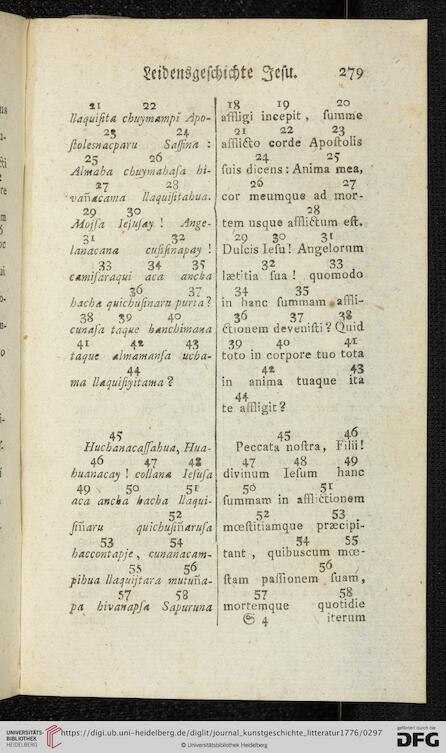 Leidensgeschichte Jesu. 279
21 22
llaquiſita chuymampi Apo-
23 24
ſtolesnacparu Saſſina :
25 26
Almaha chuymahaſa hi-
27 28
vañacama llaquiſitahua.
29 30
Moiſſa Ieſuſay ! Ange-
31 32
lanacana cuſiſinapay !
33 34 35
camiſaraqui aca ancha
36 37
hacha quichuſinaru purta ?
38 39 40
cunaſa taque hanchimana
41 42 43
taque almamanſa ucha-
44
ma llaquiſiyitama ?
45
Huchanacaſſahua, Hua-
46 47 48
huanacay ! collana Ieſuſa
49 50 51
aca ancha hacha llaqui-
52
ſiñaru quichuſiñaruſa
53 54
haccontapje, cunanacam-
55 56
pihua llaquijtara mutuña-
57 58
pa hivanapſa Sapuruna
18 19 20
affligi incepit, ſumme
21 22 23
afflicto corde Apoſtolis
24 25
ſuis dicens : Anima mea,
26 27
cor meumque ad mor-
28
tem usque afflictum eſt.
29 30 31
Dulcis Ieſu! Angelorum
32 33
lætitia ſua ! quomodo
34 35
in hanc ſummam affli-
36 37 38
ctionem deveniſti ? Quid
39 40 41
toto in corpore tuo tota
42 43
in anima tuaque ita
44
te affligit ?
45 46
Peccata noſtra, Filii!
47 48 49
divinum Ieſum hanc
50 51
ſummam in afflictionem
52 53
mœſtitiamque præcipi-
54 55
tant, quibuscum mœ-
56
ſtam paſſionem ſuam,
57 58
mortemque quotidie
S 4 iterum
UNIVERSITÄTS-
BIBLIOTHEK
HEIDELBERG
https://digi.ub.uni-heidelberg.de/diglit/journal_kunstgeschichte_litteratur1776/0297
© Universitätsbibliothek Heidelberg
gefördert durch die
DFG